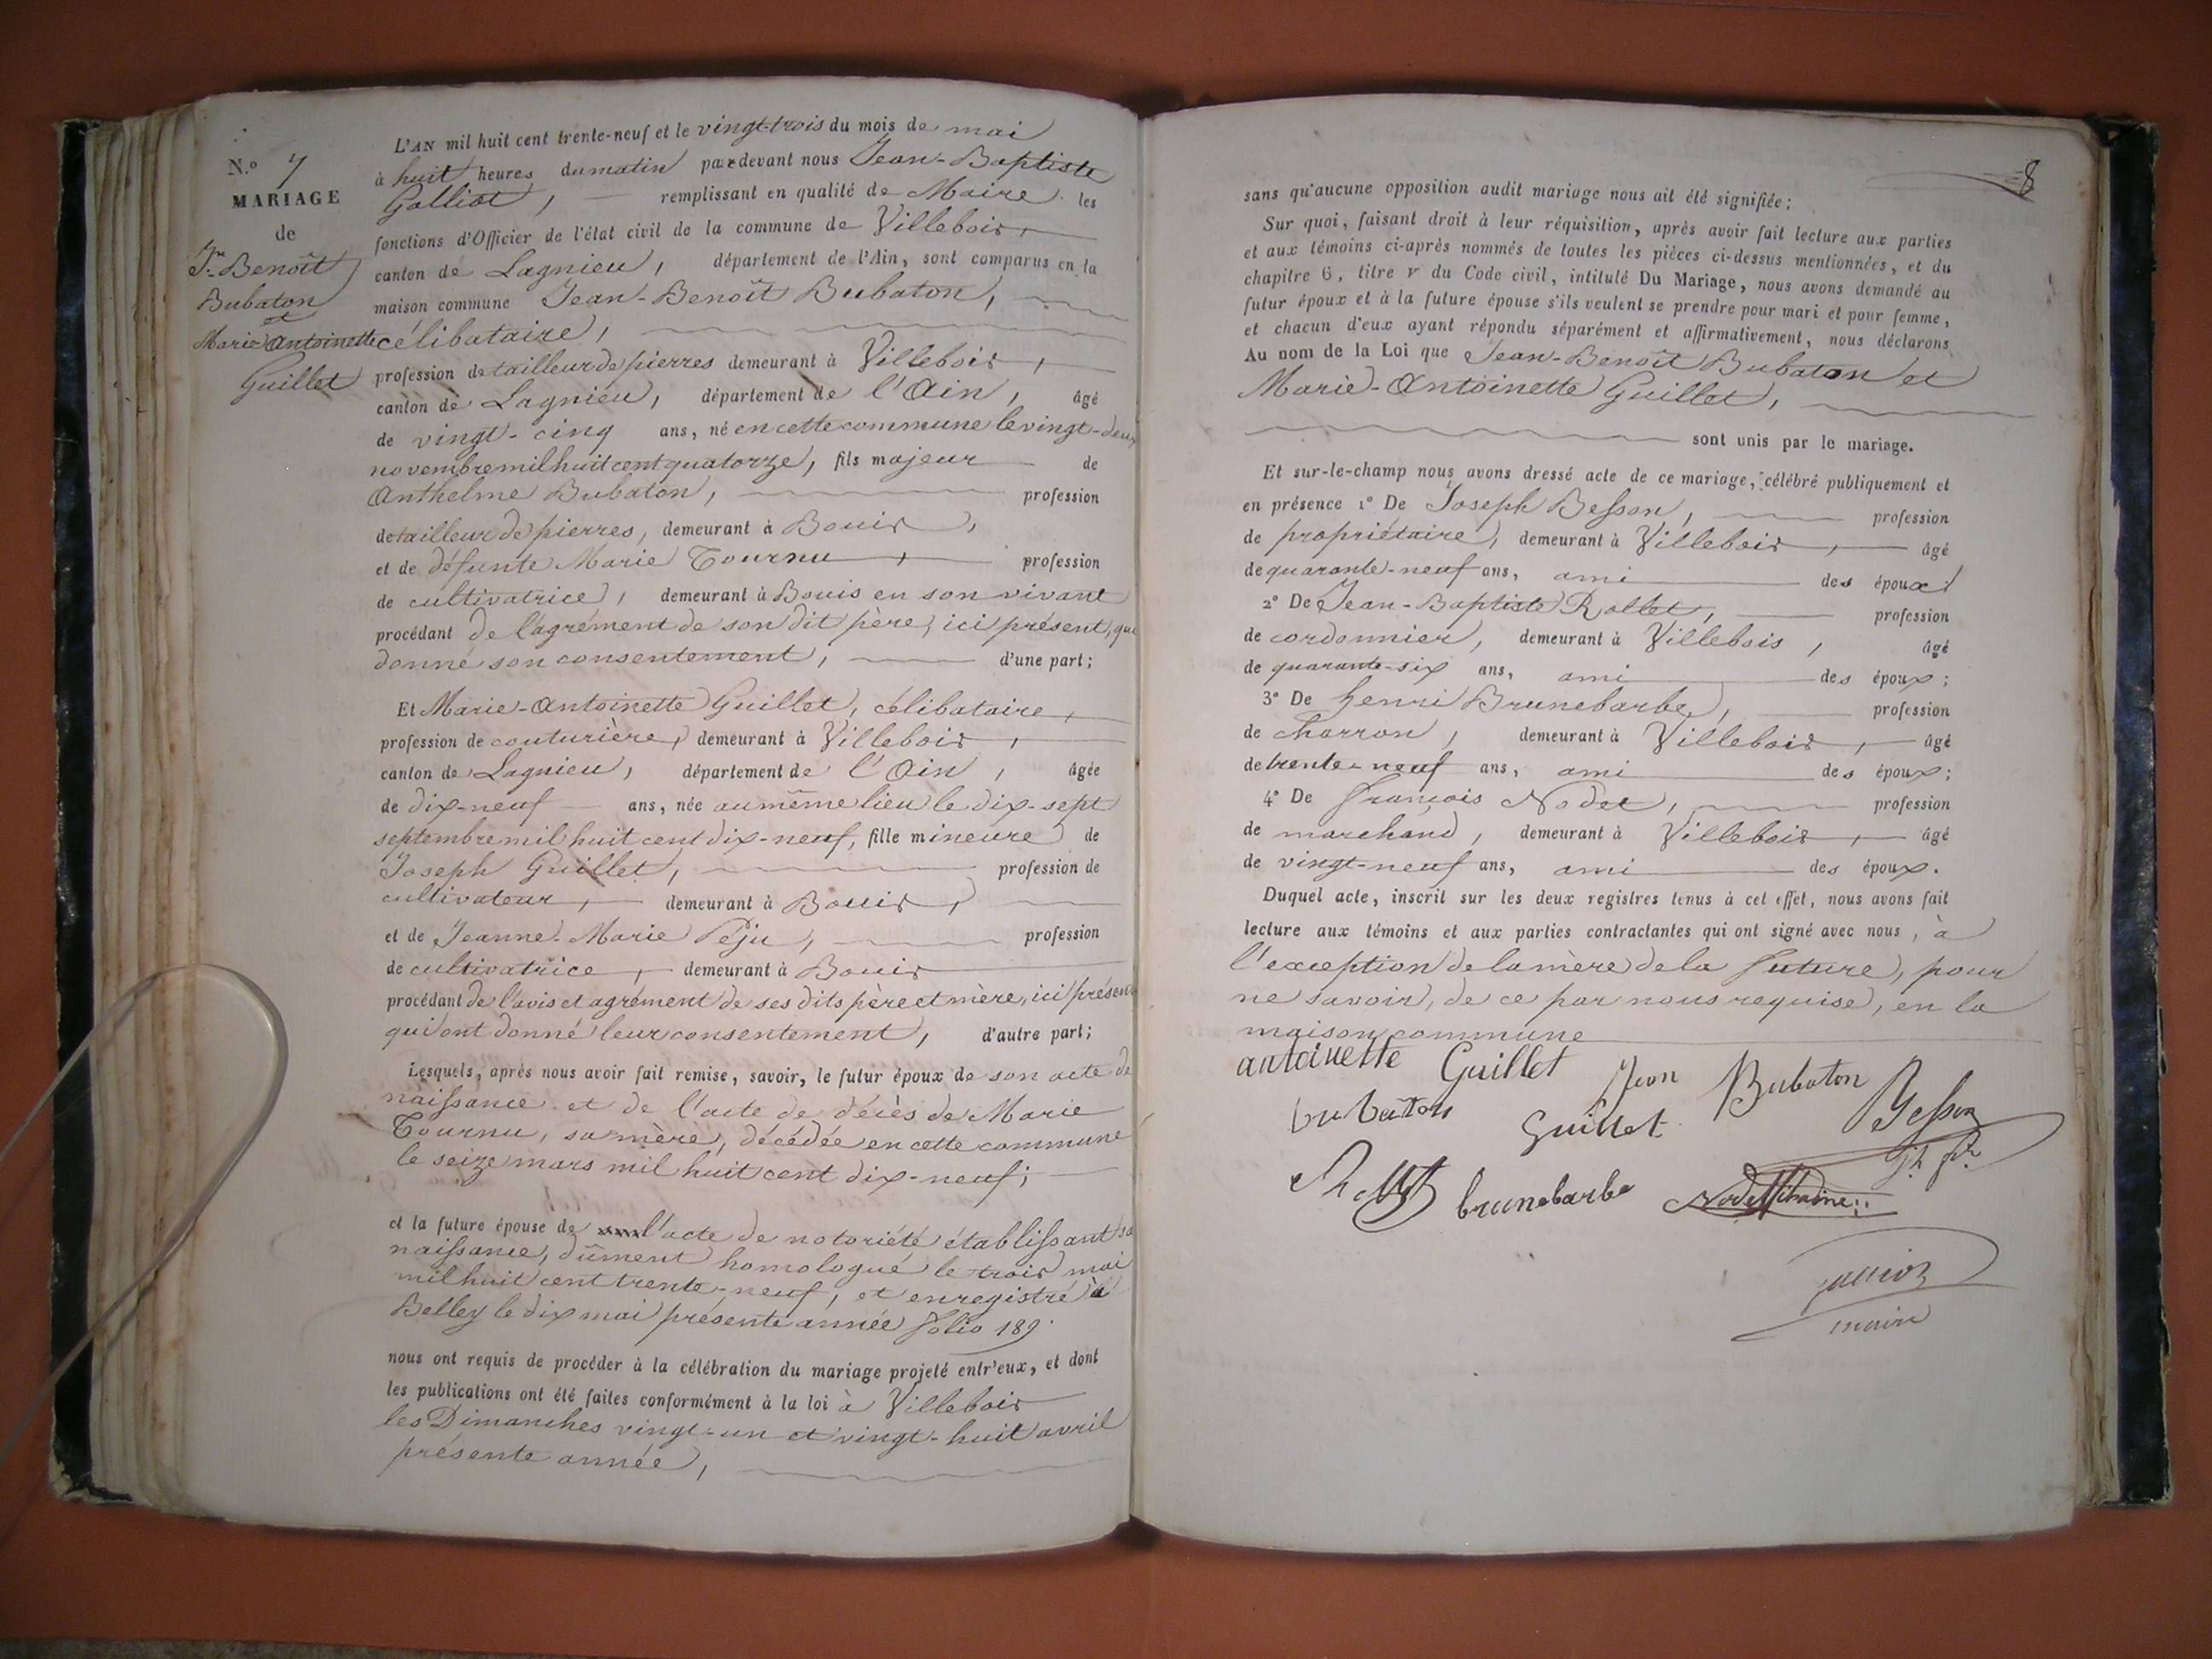 N.o 7
MARIAGE
de
Jn Benoît
Bubaton
et
Marie Antoinette
Guillet
L'AN mil huit cent trente-neuf et le vingt-trois du mois de mai
à huit heures du matin pardevant nous Jean-Baptiste
Galliot, remplissant en qualité de Maire les
fonctions d'Officier de l'état civil de la commune de Villebois,
canton de Lagnieu, département de l'Ain, sont comparus en la
maison commune Jean-Benoît Bubaton,
célibataire,
profession de tailleur de pierres demeurant à Villebois,
canton de Lagnieu, département de l'Ain, âgé
de vingt-cinq ans, né en cette commune le vingt-deux
novembre mil huit cent quatorze, fils majeur de
Anthelme Bubaton, profession
de tailleur de pierres, demeurant à Bouis,
et de défunte Marie Tournu, profession
de cultivatrice, demeurant à Bouis en son vivant
procédant de l'agrément de son dit père, ici présent, qui
donné son consentement, d'une part;
Et Marie-Antoinette Guillet, célibataire,
profession de couturière, demeurant à Villebois,
canton de Lagnieu, département de l'Ain, âgée
de dix-neuf ans, née au même lieu le dix-sept
septembre mil huit cent dix-neuf, fille mineure de
Joseph Guillet, profession de
cultivateur, demeurant à Bouis,
et de Jeanne-Marie Péju, profession
de cultivatrice, demeurant à Bouis
procédant de l'avis et agrément de ses dits père et mère, ici présents
qui ont donné leur consentement, d'autre part;
Lesquels, après nous avoir fait remise, savoir, le futur époux de son acte de
naissance et de l'acte de décès de Marie
Tournu, sa mère, décédée en cette commune
le seize mars mil huit cent dix-neuf;
et la future épouse de l'acte de notoriété établissant sa
naissance, dûment homologué le trois mai
mil huit cent trente-neuf, et enregistré à
Belley le dix mai présente année folio 189
nous ont requis de procéder à la célébration du mariage projeté entr'eux, et dont
les publications ont été faites conformément à la loi à Villebois
les Dimanches vingt-un et vingt-huit avril
présente année,
8
sans qu'aucune opposition audit mariage nous ait été signifiée;
Sur quoi, faisant droit à leur réquisition, après avoir fait lecture aux parties
et aux témoins ci-après nommés de toutes les pièces ci-dessus mentionnées, et du
chapitre 6, titre V du Code civil, intitulé Du Mariage, nous avons demandé au
futur époux et à la future épouse s'ils veulent se prendre pour mari et pour femme,
et chacun d'eux ayant répondu séparément et affirmativement, nous déclarons
Au nom de la Loi que Jean-Benoît Bubaton et
Marie-Antoinette Guillet,
sont unis par le mariage.
Et sur-le-champ nous avons dressé acte de ce mariage, célébré publiquement et
en présence 1° De Joseph Besson, profession
de propriétaire, demeurant à Villebois, âgé
de quarante-neuf ans, ami des époux;
2° De Jean-Baptiste Rollet, profession
de cordonnier, demeurant à Villebois, âgé
de quarante-six ans, ami des époux;
3° De henri Brunebarbe, profession
de charron, demeurant à Villebois, âgé
de trente-neuf ans, ami des époux;
4° De François Nodet, profession
de marchand, demeurant à Villebois, âgé
de vingt-neuf ans, ami des époux.
Duquel acte, inscrit sur les deux registres tenus à cet effet, nous avons fait
lecture aux témoins et aux parties contractantes qui ont signé avec nous, à
l'exception de la mère de la future, pour
ne savoir, de ce par nous requise, en la
maison commune
antoinette Guillet Jean Bubaton
bubaton Guillet Besson
brunebarbe
maire